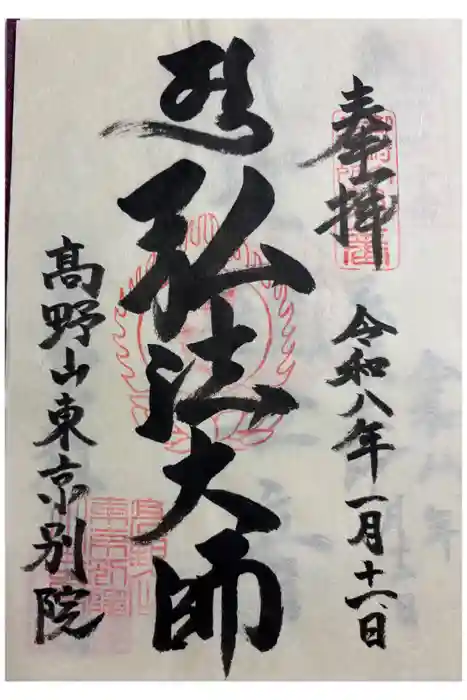 奉拝
令和八年一月十一日
弘法大師
高野山東京別院